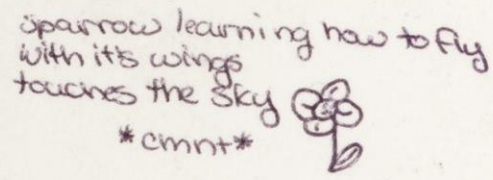 sparrow learning how to fly
with it's wings
touches the sky
*cmnt*